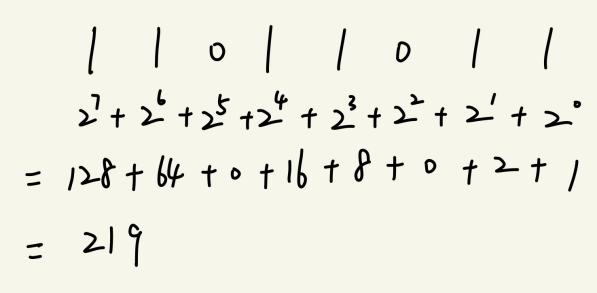 1 1 0 1 1 0 1 1
2⁷ + 2⁶ + 2⁵ + 2⁴ + 2³ + 2² + 2¹ + 2⁰
= 128 + 64 + 0 + 16 + 8 + 0 + 2 + 1
= 219